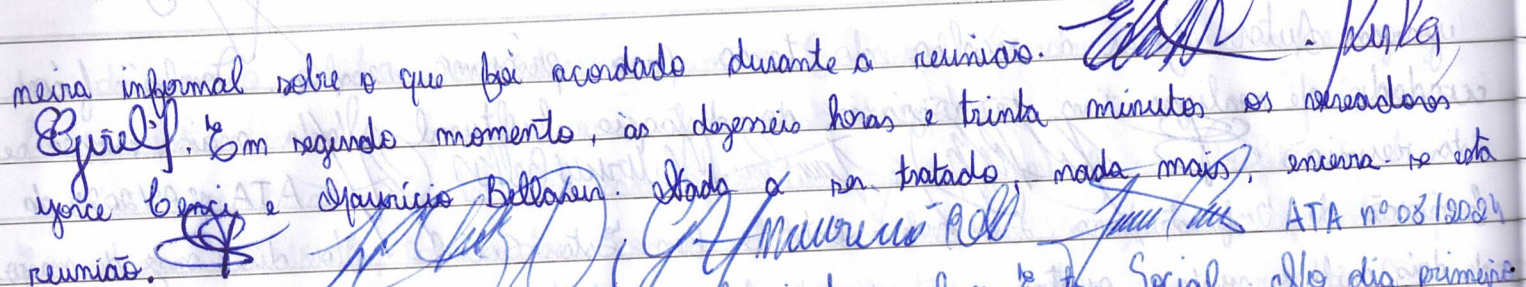 neira informal sobre o que foi acordado durante a reunião.
Em segundo momento, às dezesseis horas e trinta minutos os vereadores
e Maurício Nada a ser tratado, nada mais, encerra-se esta
reunião. ATA nº 08/2024
Social. No dia primeiro